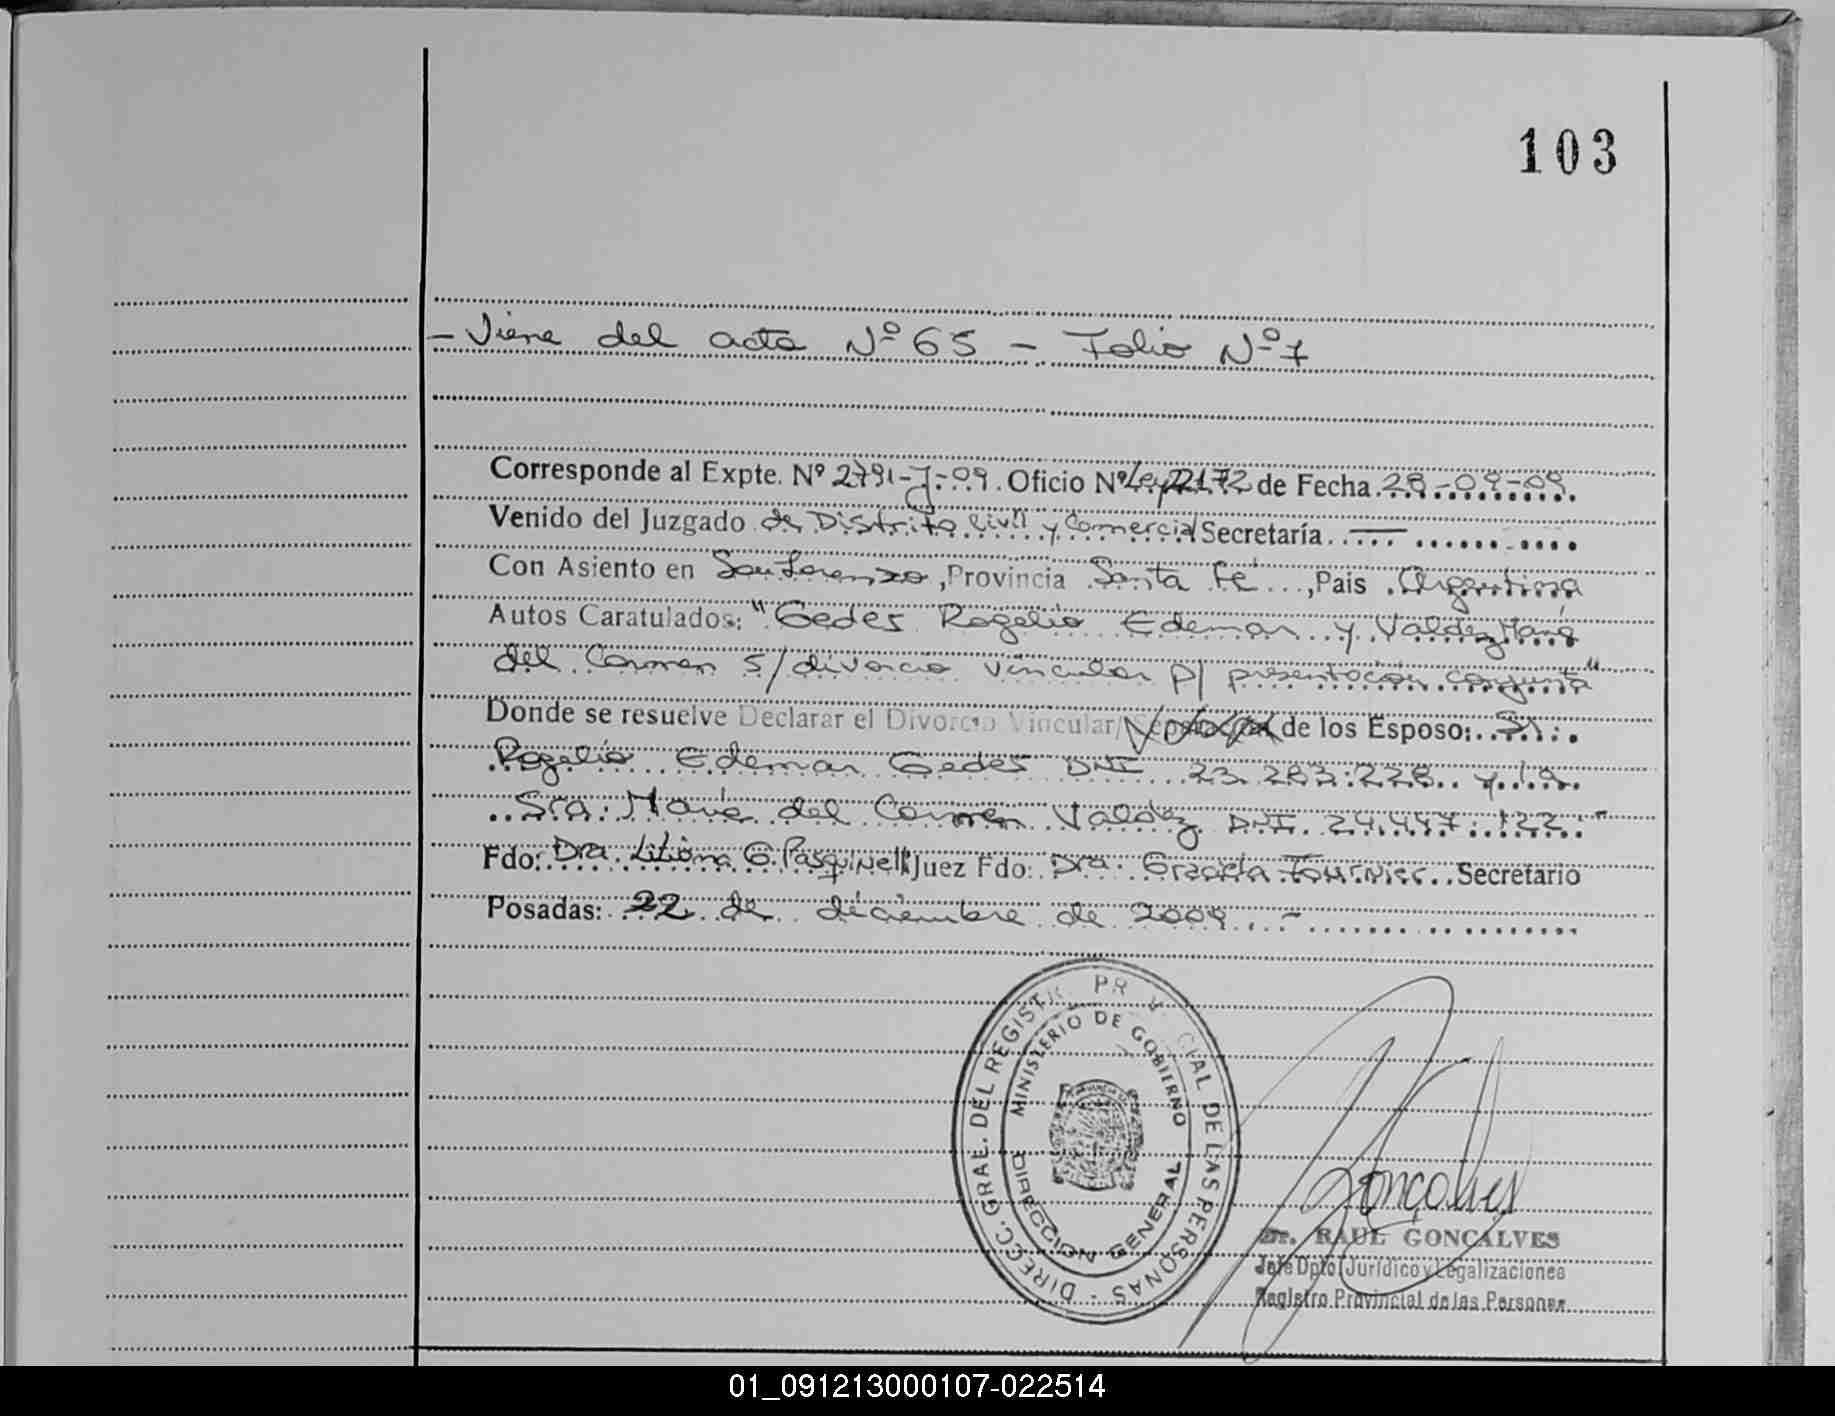 103
- Viene del acta Nº 65 - Folio Nº 7
Corresponde al Expte. Nº 2791-J-09. Oficio Nº Ley 22172 de Fecha 28-09-09
Venido del Juzgado de Distrito Civil y Comercial Secretaría. ---
Con Asiento en San Lorenzo, Provincia Santa Fé, Pais Argentina
Autos Caratulados: "Gedes Rogelio Edemar y Valdez María
del Carmen s/ divorcio vincular p/ presentación conjunta"
Donde se resuelve Declarar el Divorcio Vincular/ de los Esposo: Sr.
Rogelio Edemar Gedes DNI 23.283.228 y la
Sra. María del Carmen Valdez DNI. 24.447.122."
Fdo: Dra. Liliana G. Pasquinelli Juez Fdo: Dra. Graciela Fournier. Secretario
Posadas: 22 de diciembre de 2009. -
DIRECC. GRAL. DEL REGISTRO PROVINCIAL DE LAS PERSONAS -
MINISTERIO DE GOBIERNO
DIRECCION GENERAL
Goncalves
Dr. RAUL GONCALVES
Jefe Dpto. Jurídico y Legalizaciones
Registro Provincial de las Personas
01_091213000107-022514